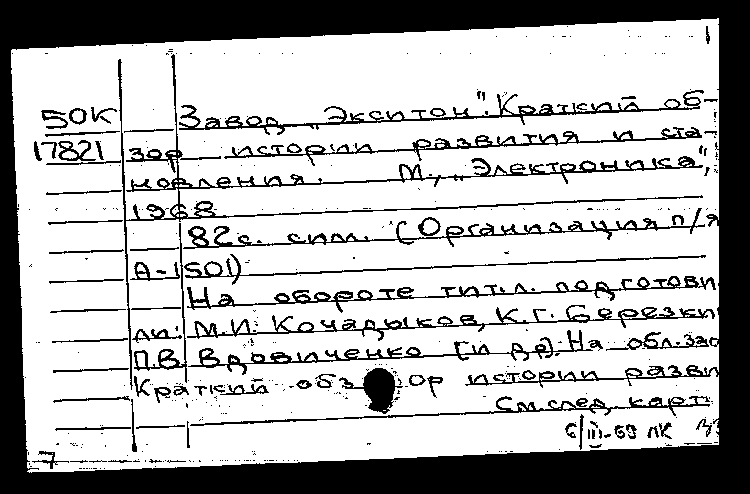 1
50К Завод „Экситон". Краткий об-
17821 зор истории развития и ста-
новления. М., „Электроника",
1968
82с. с илл. (Организация п/я
А-1501)
На обороте тит.л. подготови
ли: М.И. Кочадыков, К.Г. Березки
П.В. Вдовиченко [и др]. На обл. заг
Краткий обзор истории разви
См. след. карт.
6/III-69 ЛК
7